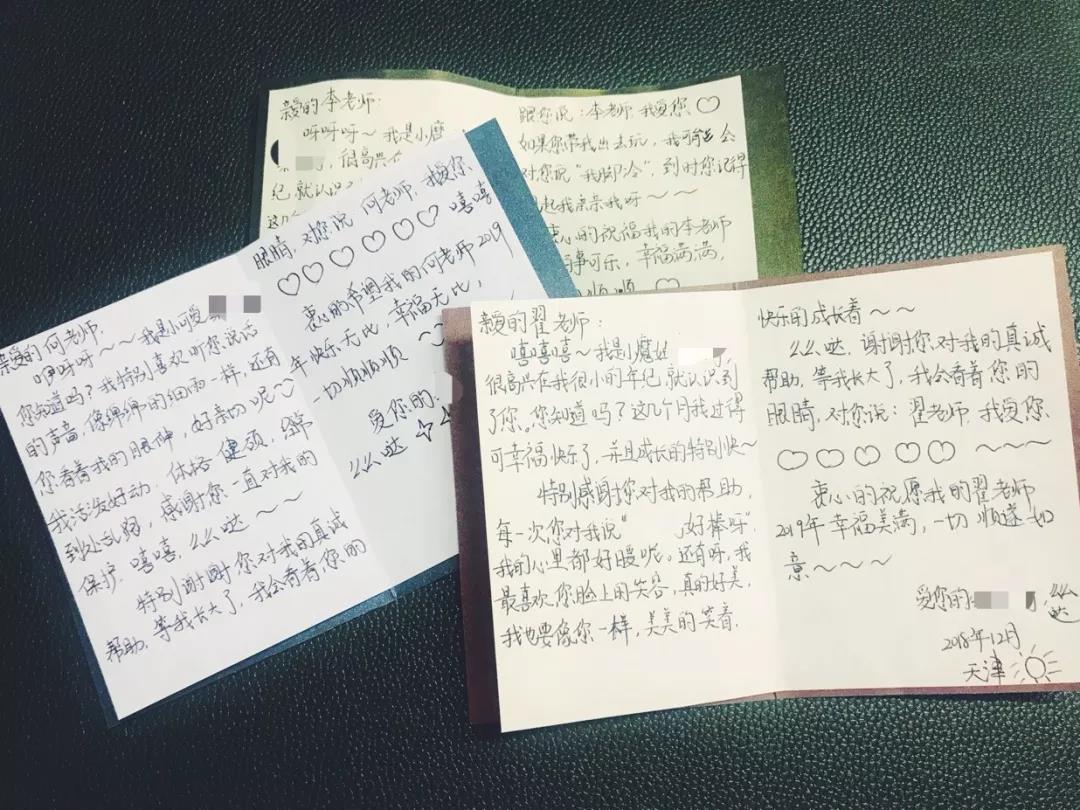 亲爱的李老师:
呀呀呀~我是小魔
,很高兴在
纪,就认识
这几个
跟您说:李老师,我爱您♡
如果您带我出去玩,我可能会
对您说“我脚冷”,到时您记得
起我亲亲我呀~~
衷心的祝福我的李老师
事可乐,幸福满满,
顺 顺 ♡
亲爱的何老师:
咿呀呀~~我是小可爱
您知道吗?我特别喜欢听您说话
的声音,像绵绵的细雨一样,还有
您看着我的眼神,好亲切呢
我活泼好动,体格健硕,经常
到处乱蹭,感谢您一直对我的
保护,嘻嘻,么么哒~
特别谢谢您对我的真诚
帮助,等我长大了,我会看着您的
眼睛,对您说:何老师,我爱您
♡♡♡♡♡♡ 嘻嘻
衷心的希望我的何老师2019
年快乐无比,幸福无比,
一切顺顺顺~
爱您的:
么么哒☆☆
亲爱的翟老师:
嘻嘻嘻~我是小魔娃
很高兴在我很小的年纪,就认识到
了您。您知道吗?这几个月我过得
可幸福快乐了,并且成长的特别快~
特别感谢您对我的帮助,
每一次您对我说“ 好棒呀”,
我的心里都好暖呢。还有呀,我
最喜欢您脸上的笑容,真的好美,
我也要像您一样,美美的笑着,
快乐的成长着~~
么么哒,谢谢您对我的真诚
帮助,等我长大了,我会看着您的
眼睛,对您说:翟老师,我爱您
♡♡♡♡♡ ~~~
衷心的祝愿我的翟老师
2019年幸福美满,一切顺遂如
意~~~
爱您的: ,么么
哒
2018年12月
天津